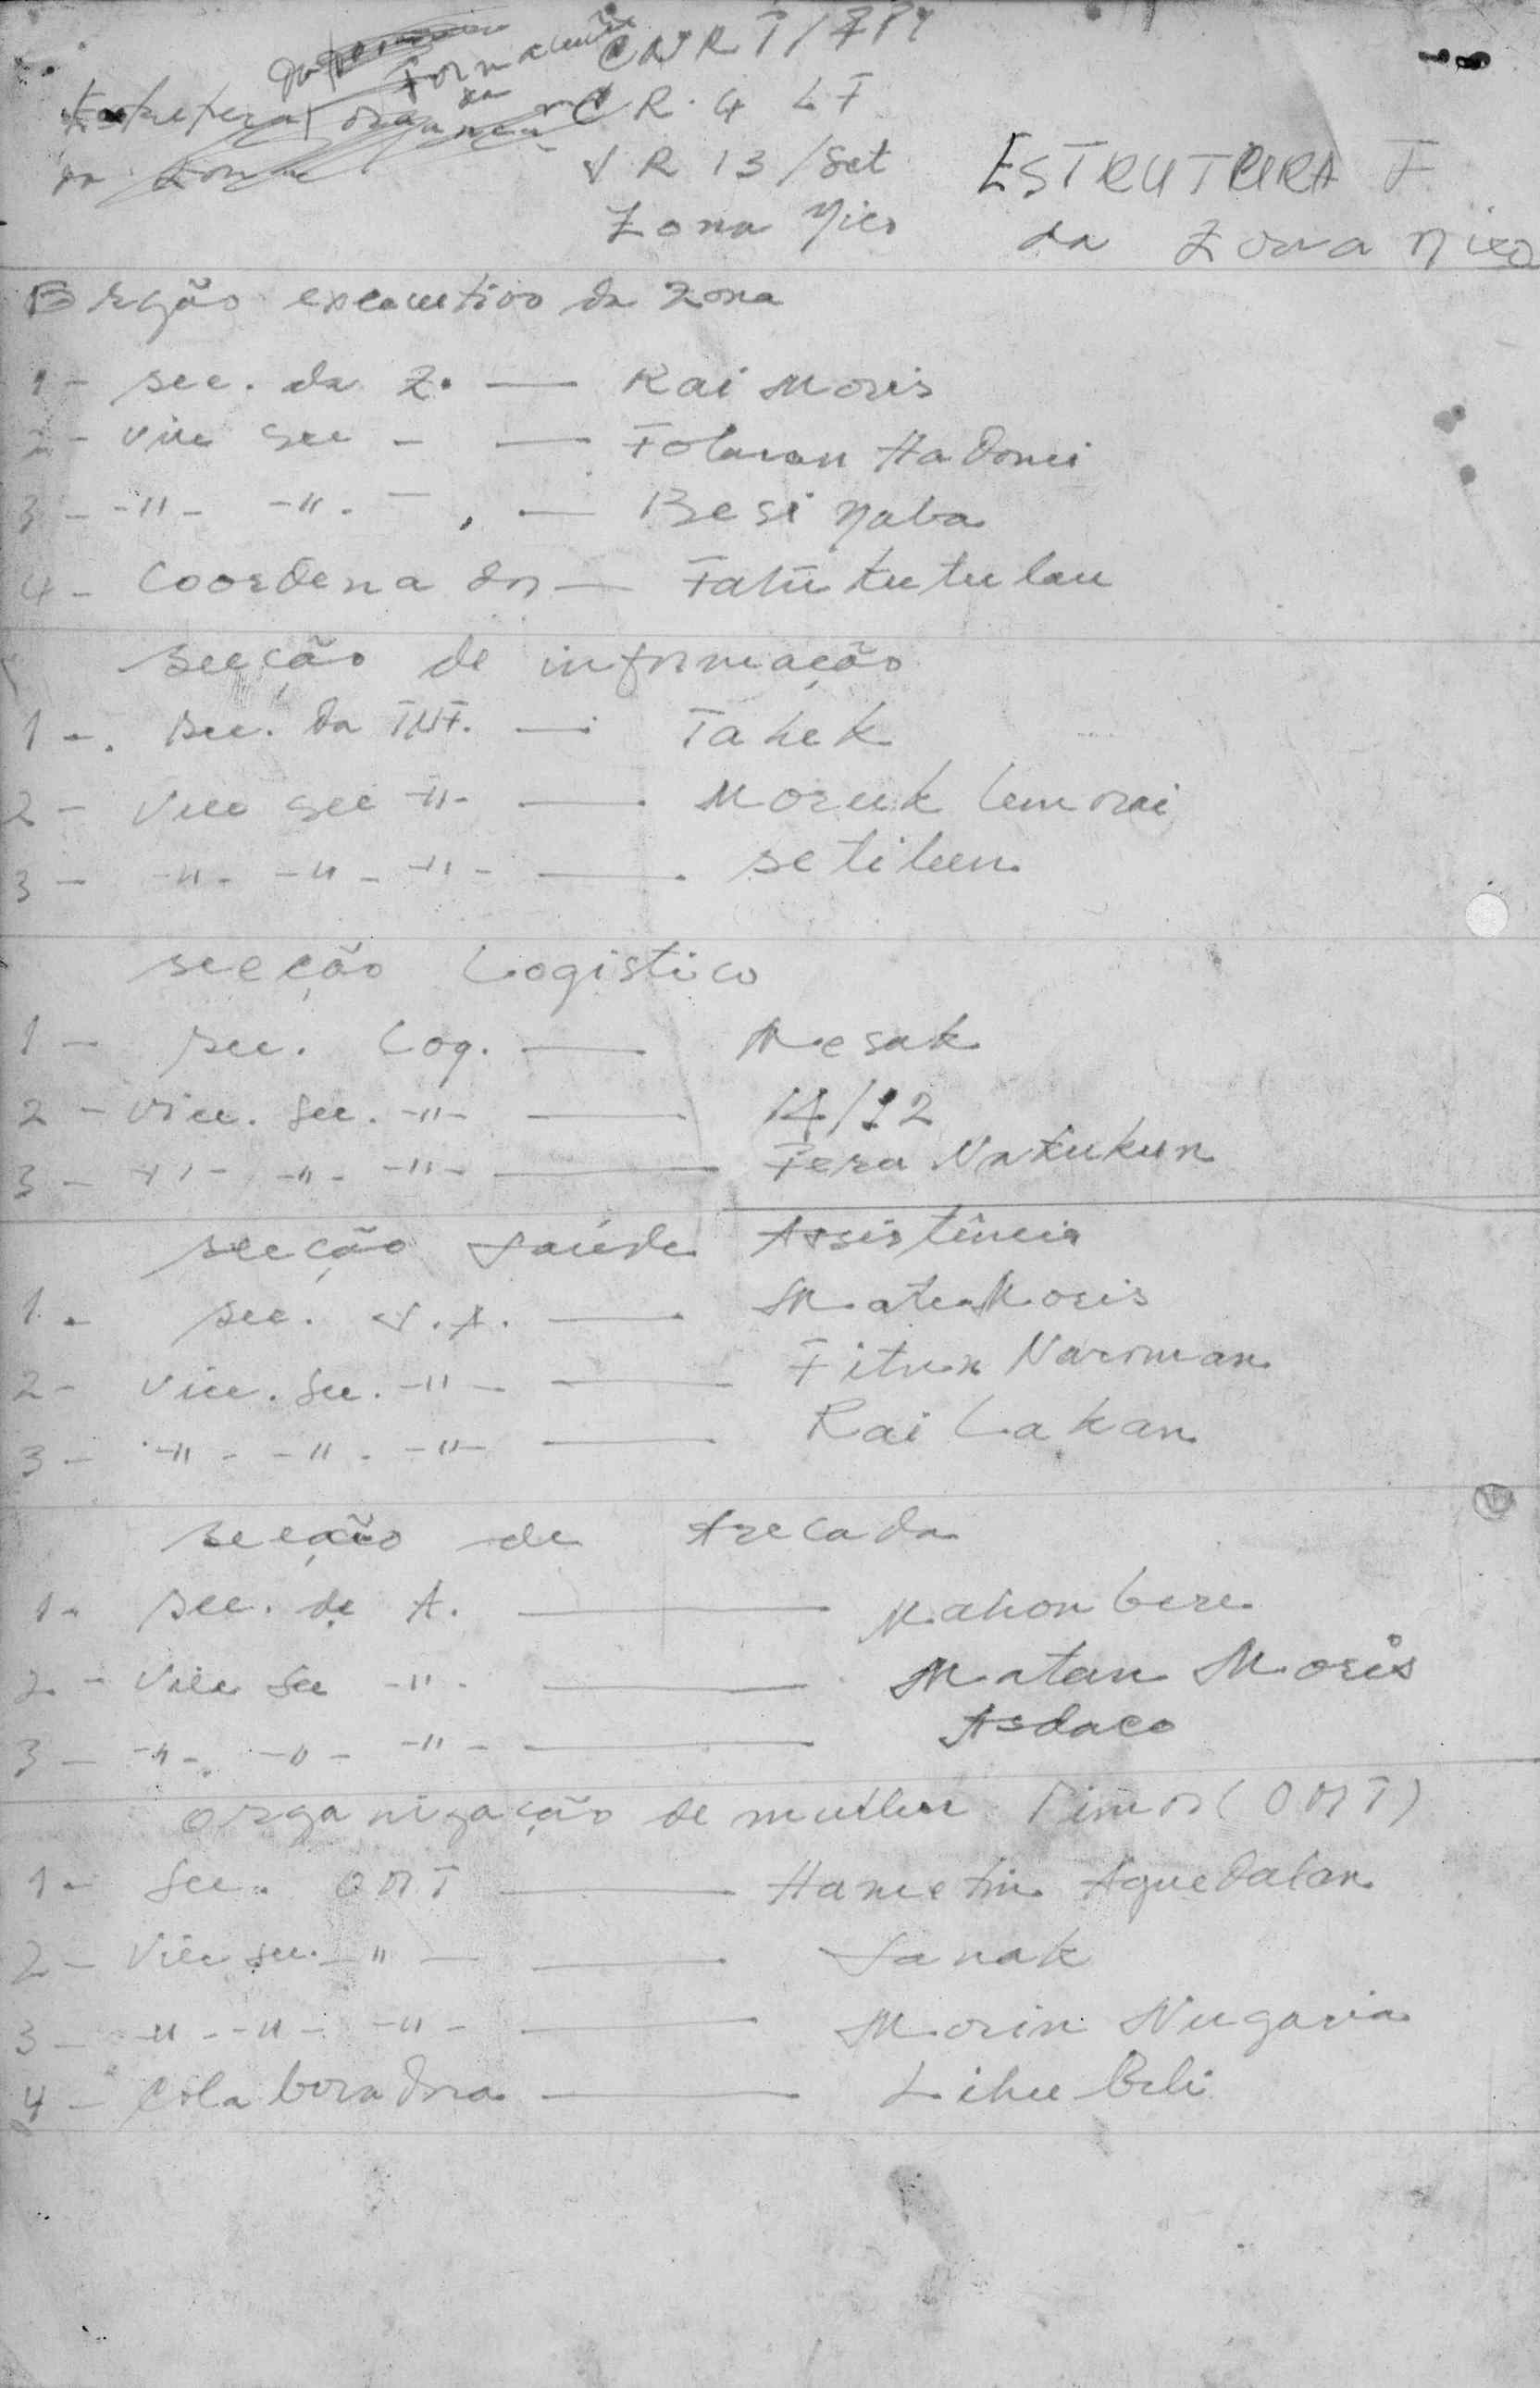 CNRT/FPI
CR.4 LF
SR 13/Set
Zona Nico
ESTRUTURA F
da Zona Nico
Orgão executivo da Zona
1 - sec. da Z. — Rai Moris
2 - Vice sec - — Folaran Hadomi
3 - -"- -"- — Besi Naba
4 - Coordenador — Fatu tutulau
secção de informação
1 - sec. da INF. — Tahek
2 - Vice sec -"- — Moruk Lemorai
3 - -"- -"- -"- —
secção Logistico
1 - sec. Log. — Mesak
2 - Vice. sec. -"- — 14/12
3 - -"- -"- -"- — Fera Natukun
secção Saúde Assistência
1 - sec. S.A. — Mate Moris
2 - Vice. sec. -"- — Fitun Naroman
3 - -"- -"- -"- — Rai Lakan
secção de Arecada
1 - sec. de A. — Mahon bere
2 - Vice sec -"- — Matan Moris
3 - -"- -"- -"- — Asdaco
organização de mulher Timor (OMT)
1 - sec. OMT — Hametin Aguedalan
2 - Vice sec. -"- — Sanak
3 - -"- -"- -"- — Morin Nugaria
4 - Colaboradora — Lihu Beli